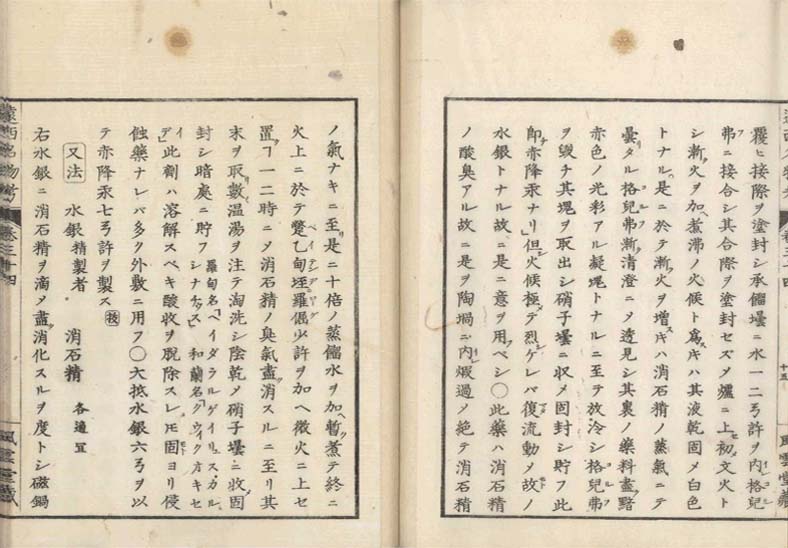 覆ヒ接際ヲ塗封シ承餾壜ニ水一二弓許ヲ内格兒
弗ニ接合シ其合際ヲ塗封セズメ爐ニ上初文火ト
シ漸火ヲ加煮沸ノ火候ト爲キハ其液乾固メ白色
トナル是ニ於テ漸火ヲ増キハ消石精ノ蒸氣ニテ
曇リタル格兒弗漸清澄ニメ透見シ其裏ノ藥料盡黯
赤色ノ光彩アル凝塊トナルニ至テ放冷シ格兒弗
ヲ毀チ其塊ヲ取出シ硝子壜ニ収メ固封シ貯フ此
即赤降汞ナリ但火候極テ烈シケレバ復流動メ故ノ
水銀トナル故ニ是ニ意ヲ用フベシ〇此藥ハ消石精
ノ酸臭アル故ニ是ヲ陶堝ニ内煆過メ絶テ消石精
十五
風雲堂藏
ノ氣ナキニ至是ニ十倍ノ蒸餾水ヲ加暫煮テ終ニ
火上ニ於テ蹩乙甸垤羅倔少許ヲ加ヘ微火ニ上セ
置ヿ一二時ニメ消石精ノ臭氣盡消スルニ至リ其
末ヲ取數温湯ヲ注テ淘洗シ陰乾メ硝子壜ニ收固
封シ暗處ニ貯フ 羅甸名ヘイダラルゲイリュス、カルシナチュス 和蘭名グウイクオキセイデ
此劑ハ溶解スベキ酸收ヲ脱除スレモ固ヨリ侵
蝕藥ナレバ多ク外敷ニ用フ〇大抵水銀六弓ヲ以
テ赤降汞七弓許ヲ製ス 按
又法 水銀精製者 消石精 各適宜
右水銀ニ消石精ヲ滴メ盡消化スルヲ度トシ磁鍋
遠西名物考
卷三十四
風雲堂藏